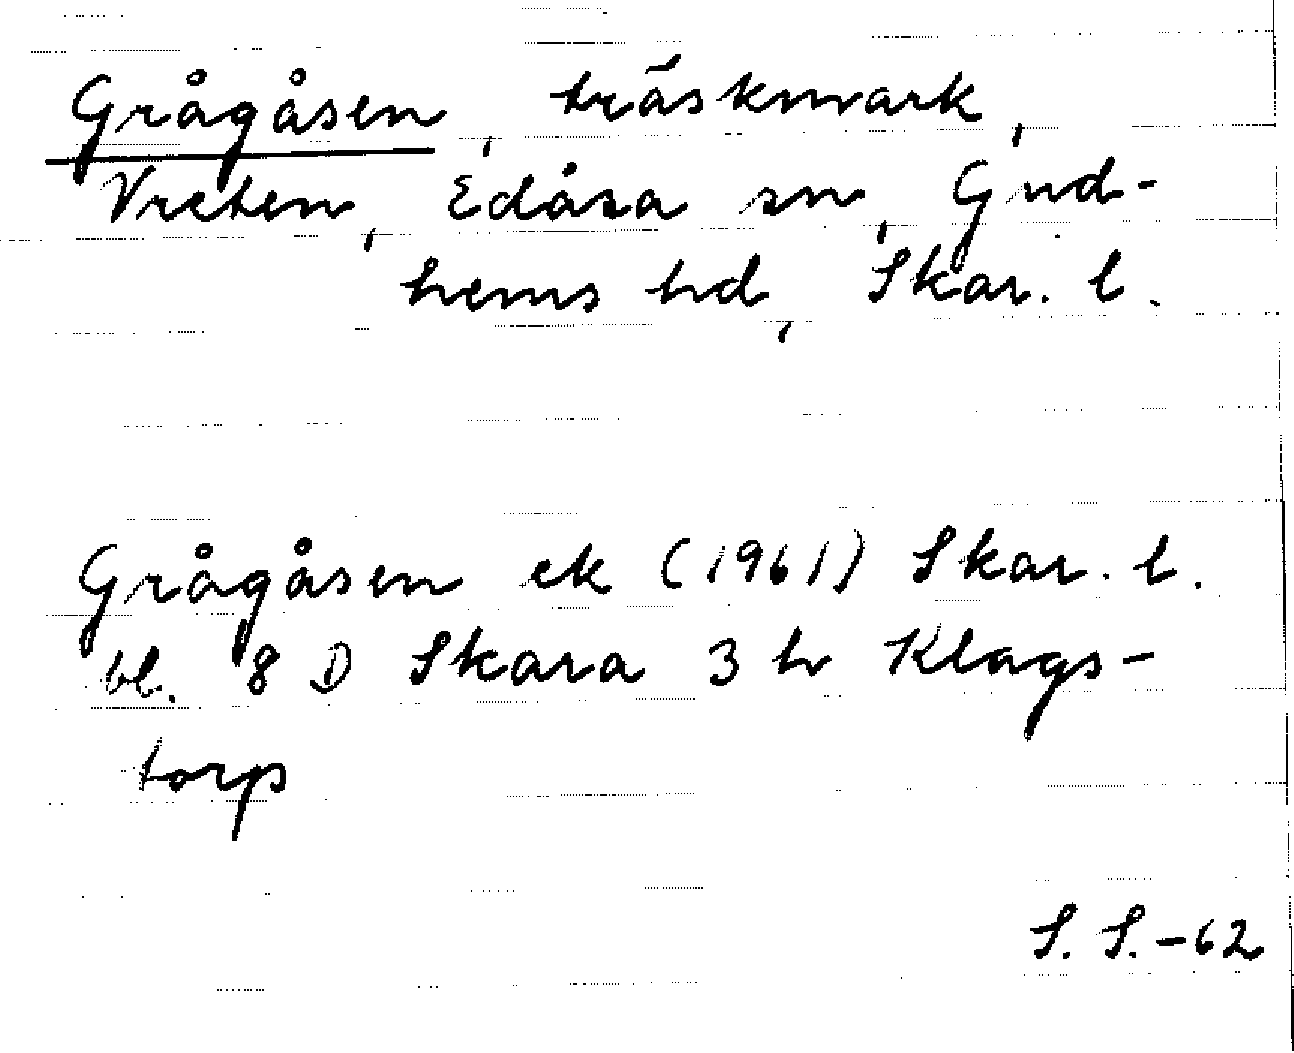 Grågåsen, träskmark,
Vreten, Edåsa sn, Gud-
hems hd, Skar. l.
Grågåsen ek (1961) Skar. l.
bl. 8 D Skara 3 h Klags-
torp
S. S. -62